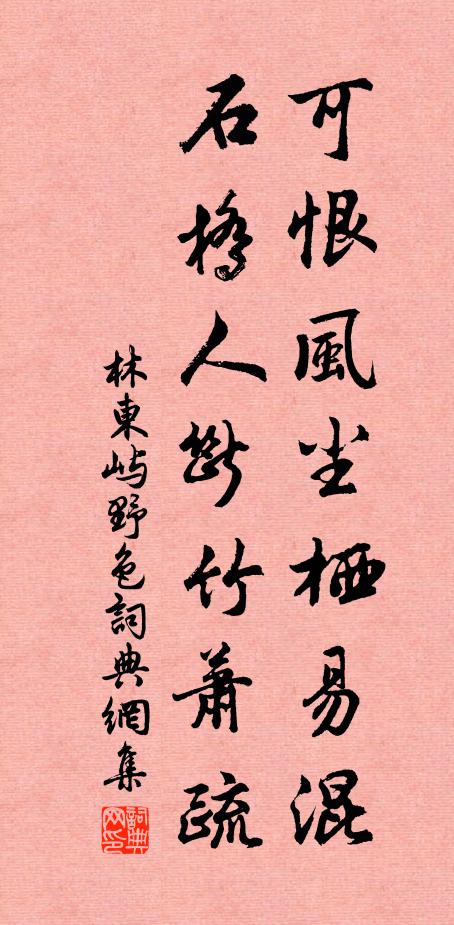 可恨風塵栖易混
石橋人斷竹蕭疏
林東嶼野色詞典網集
詞典网印